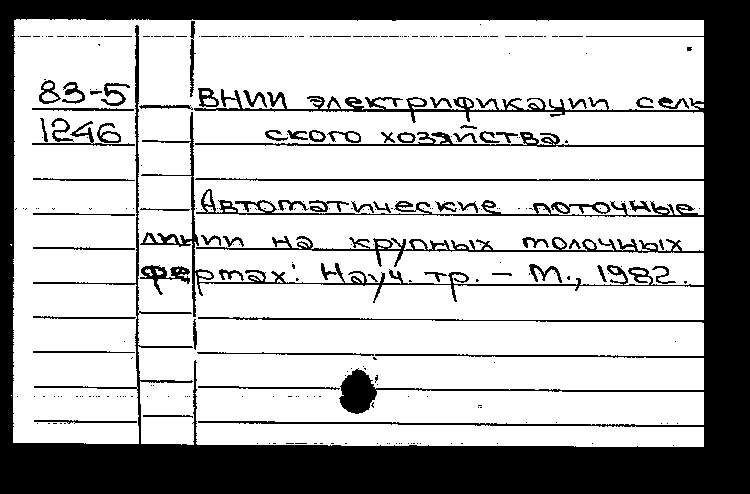 83-5 ВНИИ электрификации сель
1246 ского хозяйства.
Автоматические поточные
линии на крупных молочных
фермах: Науч. тр. – М., 1982.